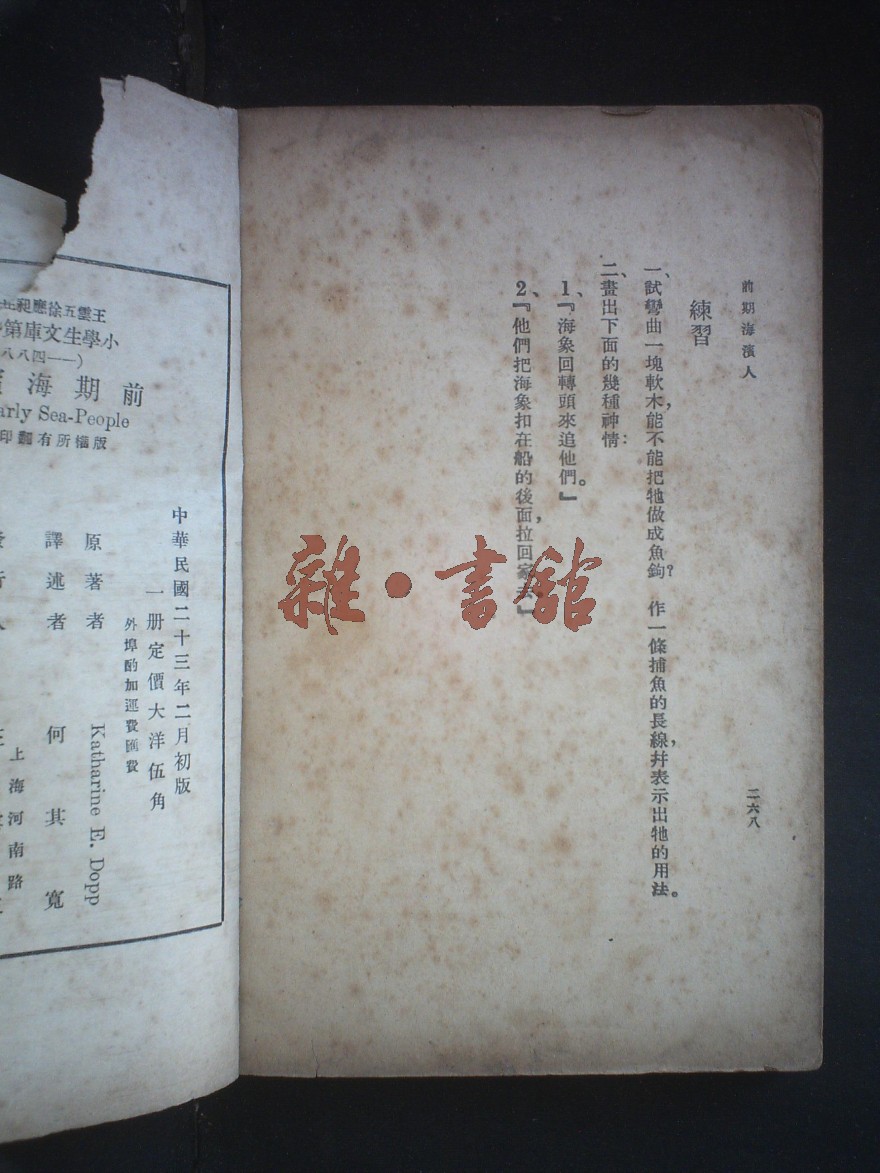 前期海濱人
二六八
練習
一、試彎曲一塊軟木，能不能把牠做成魚鉤？　作一條捕魚的長線，幷表示出牠的用法。
二、畫出下面的幾種神情：
1、『海象回轉頭來追他們。』
2、『他們把海象扣在船的後面，拉回家去。』
雜·書館
王雲五徐應昶
小學生文庫第
八八四一一)
前期海
arly Sea-People
版權所有翻印
中華民國二十三年二月初版
一册定價大洋伍角
外埠酌加運費匯費
原著者　Katharine E. Dopp
譯述者　何其寬
上海河南路